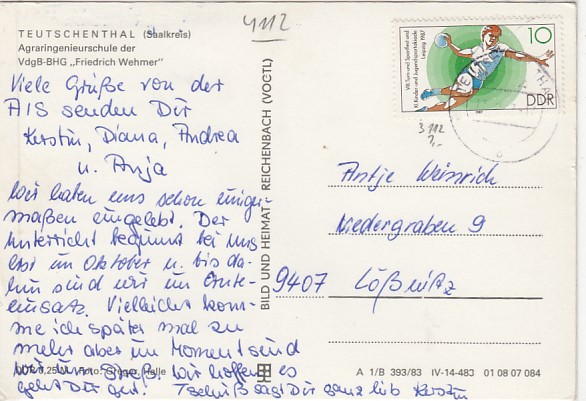 TEUTSCHENTHAL (Saalkreis)
Agraringenieurschule der
VdgB-BHG „Friedrich Wehmer"
4112
Viele Grüße von der
AIS senden Dir
Kerstin, Diana, Andrea
u. Anja
Wir haben uns schon einiger-
maßen eingelebt. Der
Unterricht beginnt bei uns
erst im Oktober u. bis da-
hin sind wir im Ernte-
einsatz. Vielleicht kom-
me ich später mal zu
mehr aber im Moment sind
wir im Streß. Wir hoffen es
geht Dir gut. Tschüß sagt Dir ganz lieb Kerstin
DDR 0,25 M Foto: Gregor, Halle
BILD UND HEIMAT REICHENBACH (VOGTL)
VIII. Turn- und Sportfest und
XI. Kinder- und Jugendspartakiade
Leipzig 1987
10
DDR
3112
2,-
Antje Weinrich
Niedergraben 9
9407 Lößnitz
A 1/B 393/83 IV-14-483 01 08 07 084